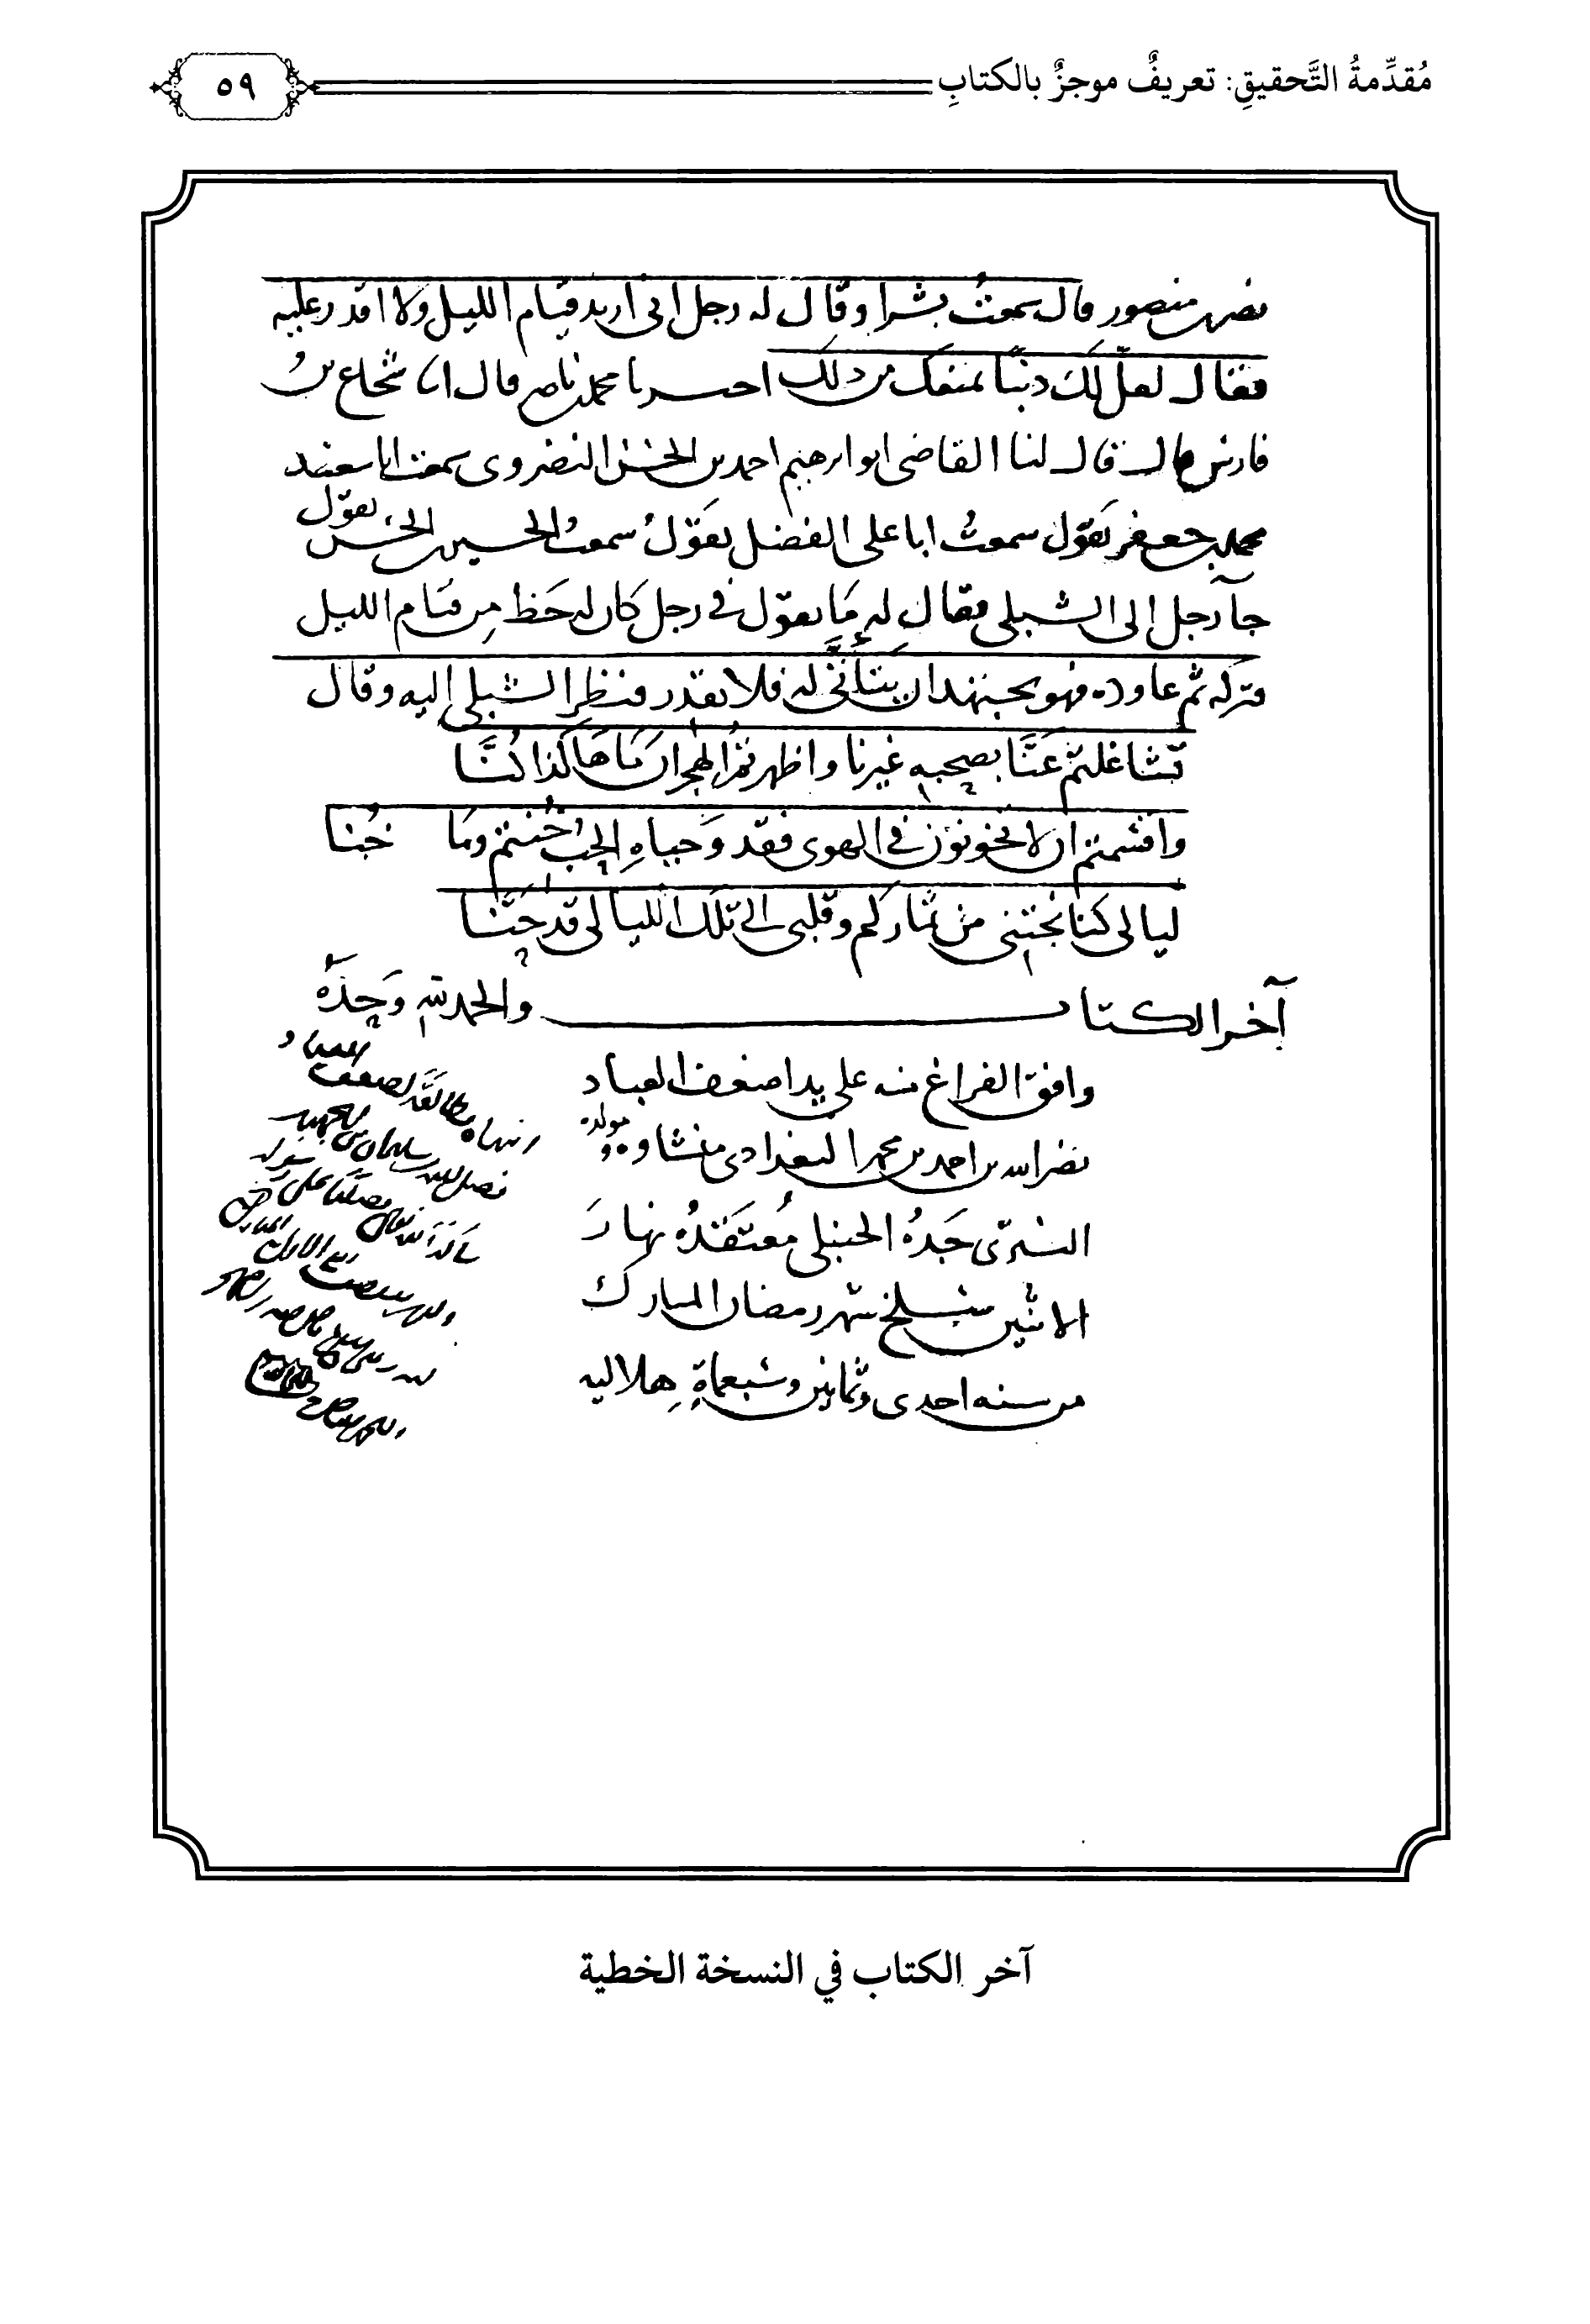 مُقدِّمةُ التَّحقيقِ: تعريفٌ موجزٌ بالكتابِ
٥٩
نصر بن منصور قال سمعتُ بشرا وقال له رجل انى اريد قيام الليل ولا اقدر عليه
فقال لعلّ لك ذنبًا يمنعك من ذلك اخبرنا محمد بن ناصر قال انا شجاع بنُ
فارس قال قال لنا القاضى ابو ابرهيم احمد بن الحسن النضروى سمعت ابا سعيد
محمد بن جعفر يقول سمعتُ ابا على الفضل يقولُ سمعتُ الحسين بن الحسن يقول
جآ رجل الى الشبلى فقال له مَا يقول فى رجل كان له حَظ مِن قيام الليل
فتركه ثم عاوده فهو يجتهد ان يتأتّى له فلا يقدر فنظر الشبلى اليه وقال
تشاغلتم عَنَّا بصحبه غيرنا واظهرتمُ الهجران مَا هَاكذا كُنَّا
واقسمتم ان لا تخونون فى الهوى فقد وَحياهِ الحب خُنتم ومَا خُنا
ليالى كنا نجتنى من ثماركم وقلبى الى تلك الليالى قد حَنَّا
آخر الكتاب والحمد لله وَحدَهُ
وافق الفراغ منه على يد اضعف العباد
نصر الله بن احمد بن محمد البغدادى منشاه ومولده
التسترى جَدهُ الحنبلى مُعتقَدهُ نهارَ
الاثنين منسلخ شهر رمضان المبارك
من سنه احدى وثمانين وسبعمايةٍ هلاليه
آخر الكتاب في النسخة الخطية